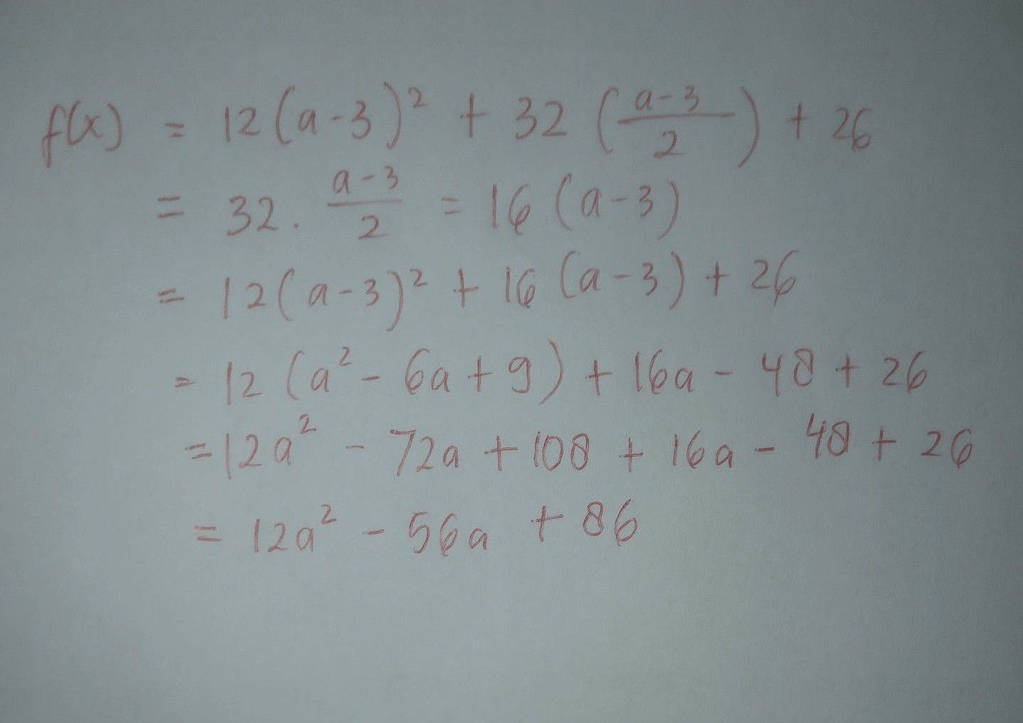 f(x) = 12(a-3)² + 32 (a-3/2) + 26
= 32. a-3/2 = 16 (a-3)
= 12(a-3)² + 16 (a-3) + 26
= 12 (a² - 6a + 9) + 16a - 48 + 26
= 12a² - 72a + 108 + 16a - 48 + 26
= 12a² - 56a + 86